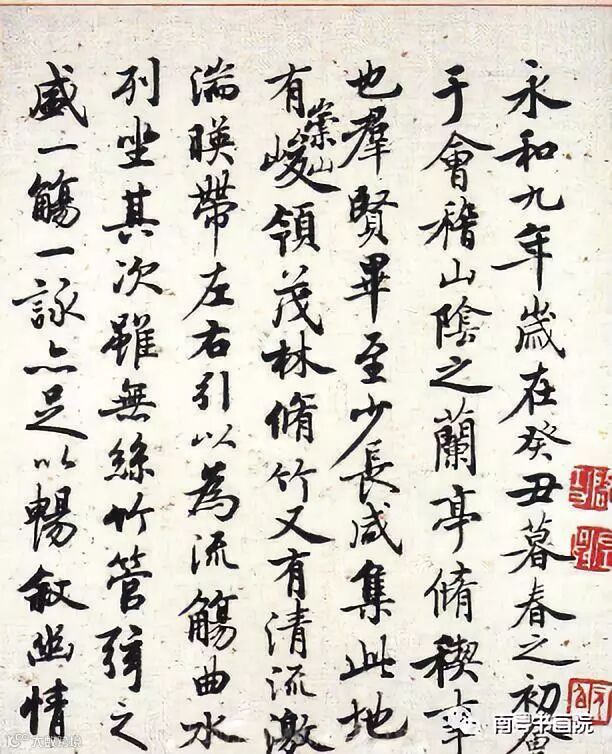 永和九年歲在癸丑暮春之初
于會稽山陰之蘭亭脩稧事
也羣賢畢至少長咸集此地
有崇山峻領茂林脩竹又有清流激
湍暎帶左右引以為流觴曲水
列坐其次雖無絲竹管弦之
盛一觴一詠亦足以暢敘幽情
南寻书画院